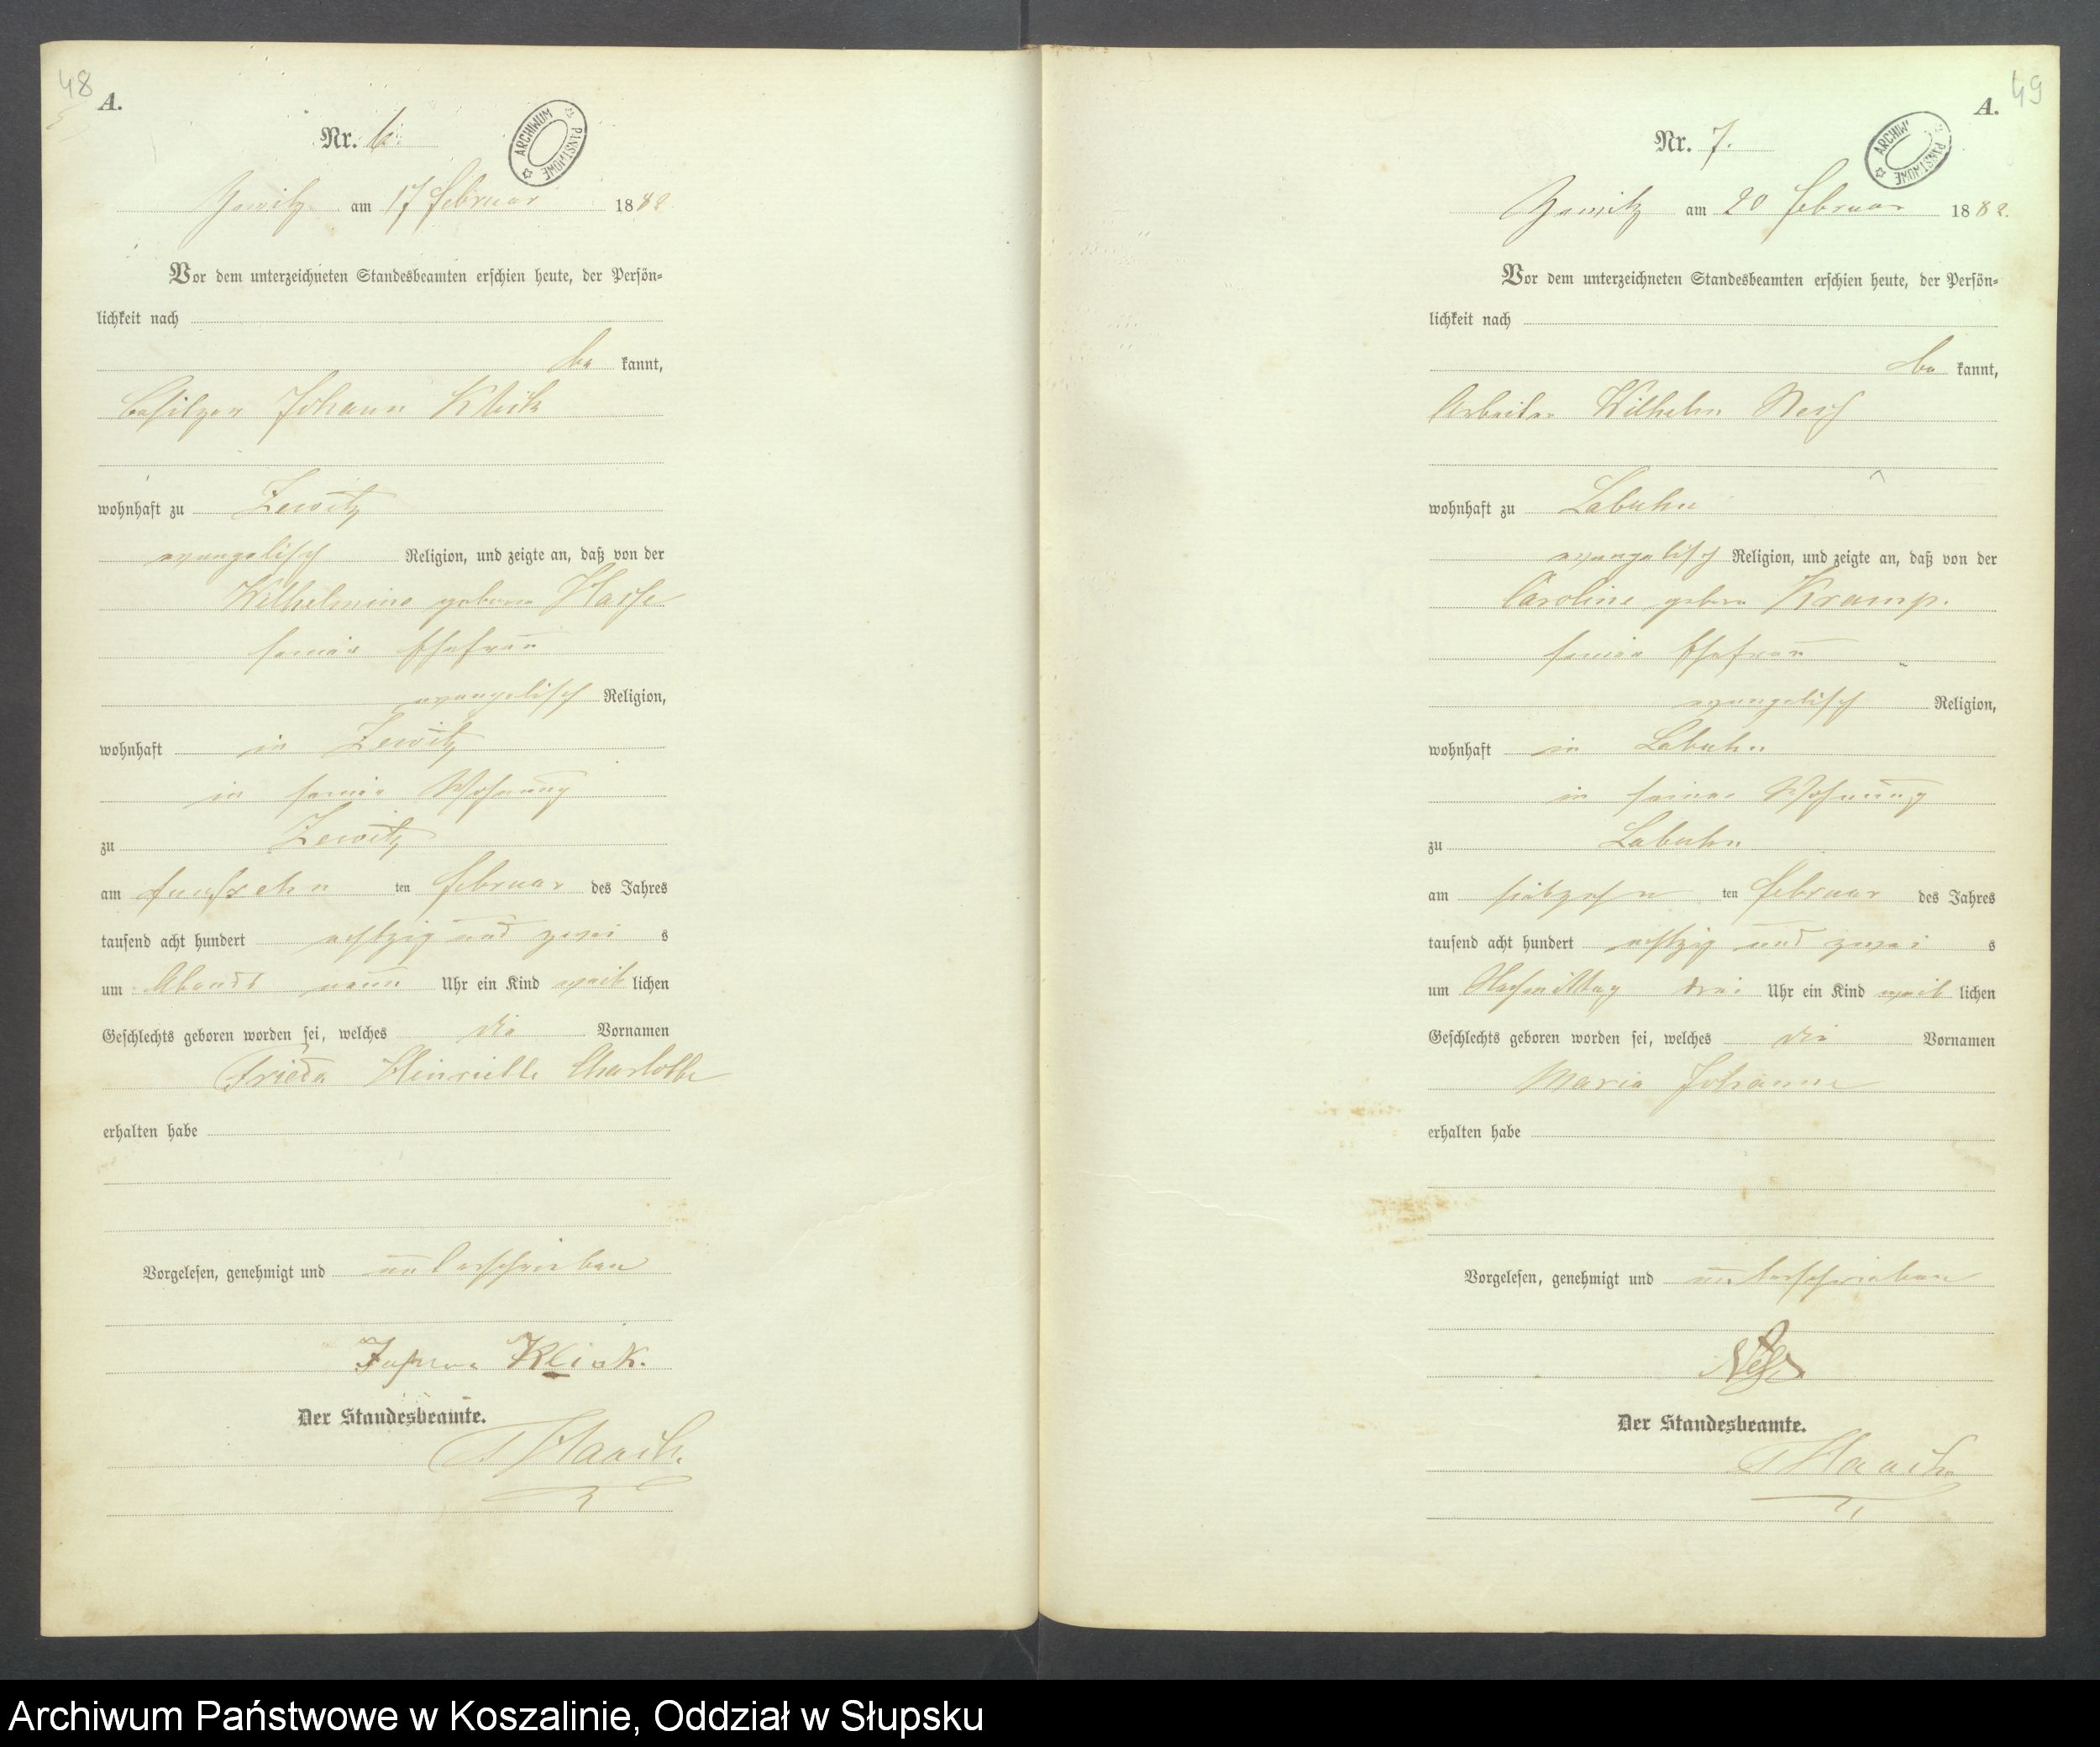 48
A.
Nr. 6.
ARCHIWUM PAŃSTWOWE
Zewitz am 17 Februar 1882
Vor dem unterzeichneten Standesbeamten erschien heute, der Persön-
lichkeit nach
be kannt,
Besitzer Johann Klick
wohnhaft zu Zewitz
evangelisch Religion, und zeigte an, daß von der
Wilhelmine geborne Hasse
seiner Ehefrau
evangelisch Religion,
wohnhaft in Zewitz
in seiner Wohnung
zu Zewitz
am funfzehn ten Februar des Jahres
tausend acht hundert achtzig und zwei s
um Abends neun Uhr ein Kind weib lichen
Geschlechts geboren worden sei, welches die Vornamen
Frieda Henriette Charlotte
erhalten habe
Vorgelesen, genehmigt und unterschrieben
Klick.
Der Standesbeamte.
49
A.
Nr. 7.
ARCHIWUM PAŃSTWOWE
Zewitz am 20 Februar 1882.
Vor dem unterzeichneten Standesbeamten erschien heute, der Persön-
lichkeit nach
be kannt,
Arbeiter Wilhelm
wohnhaft zu Labuhn
evangelisch Religion, und zeigte an, daß von der
Caroline geborne Kramp.
seiner Ehefrau
evangelisch Religion,
wohnhaft in Labuhn
in seiner Wohnung
zu Labuhn
am siebzehn ten Februar des Jahres
tausend acht hundert achtzig und zwei s
um Nachmittag drei Uhr ein Kind weib lichen
Geschlechts geboren worden sei, welches die Vornamen
Maria Johanne
erhalten habe
Vorgelesen, genehmigt und unterschrieben
Der Standesbeamte.
Archiwum Państwowe w Koszalinie, Oddział w Słupsku